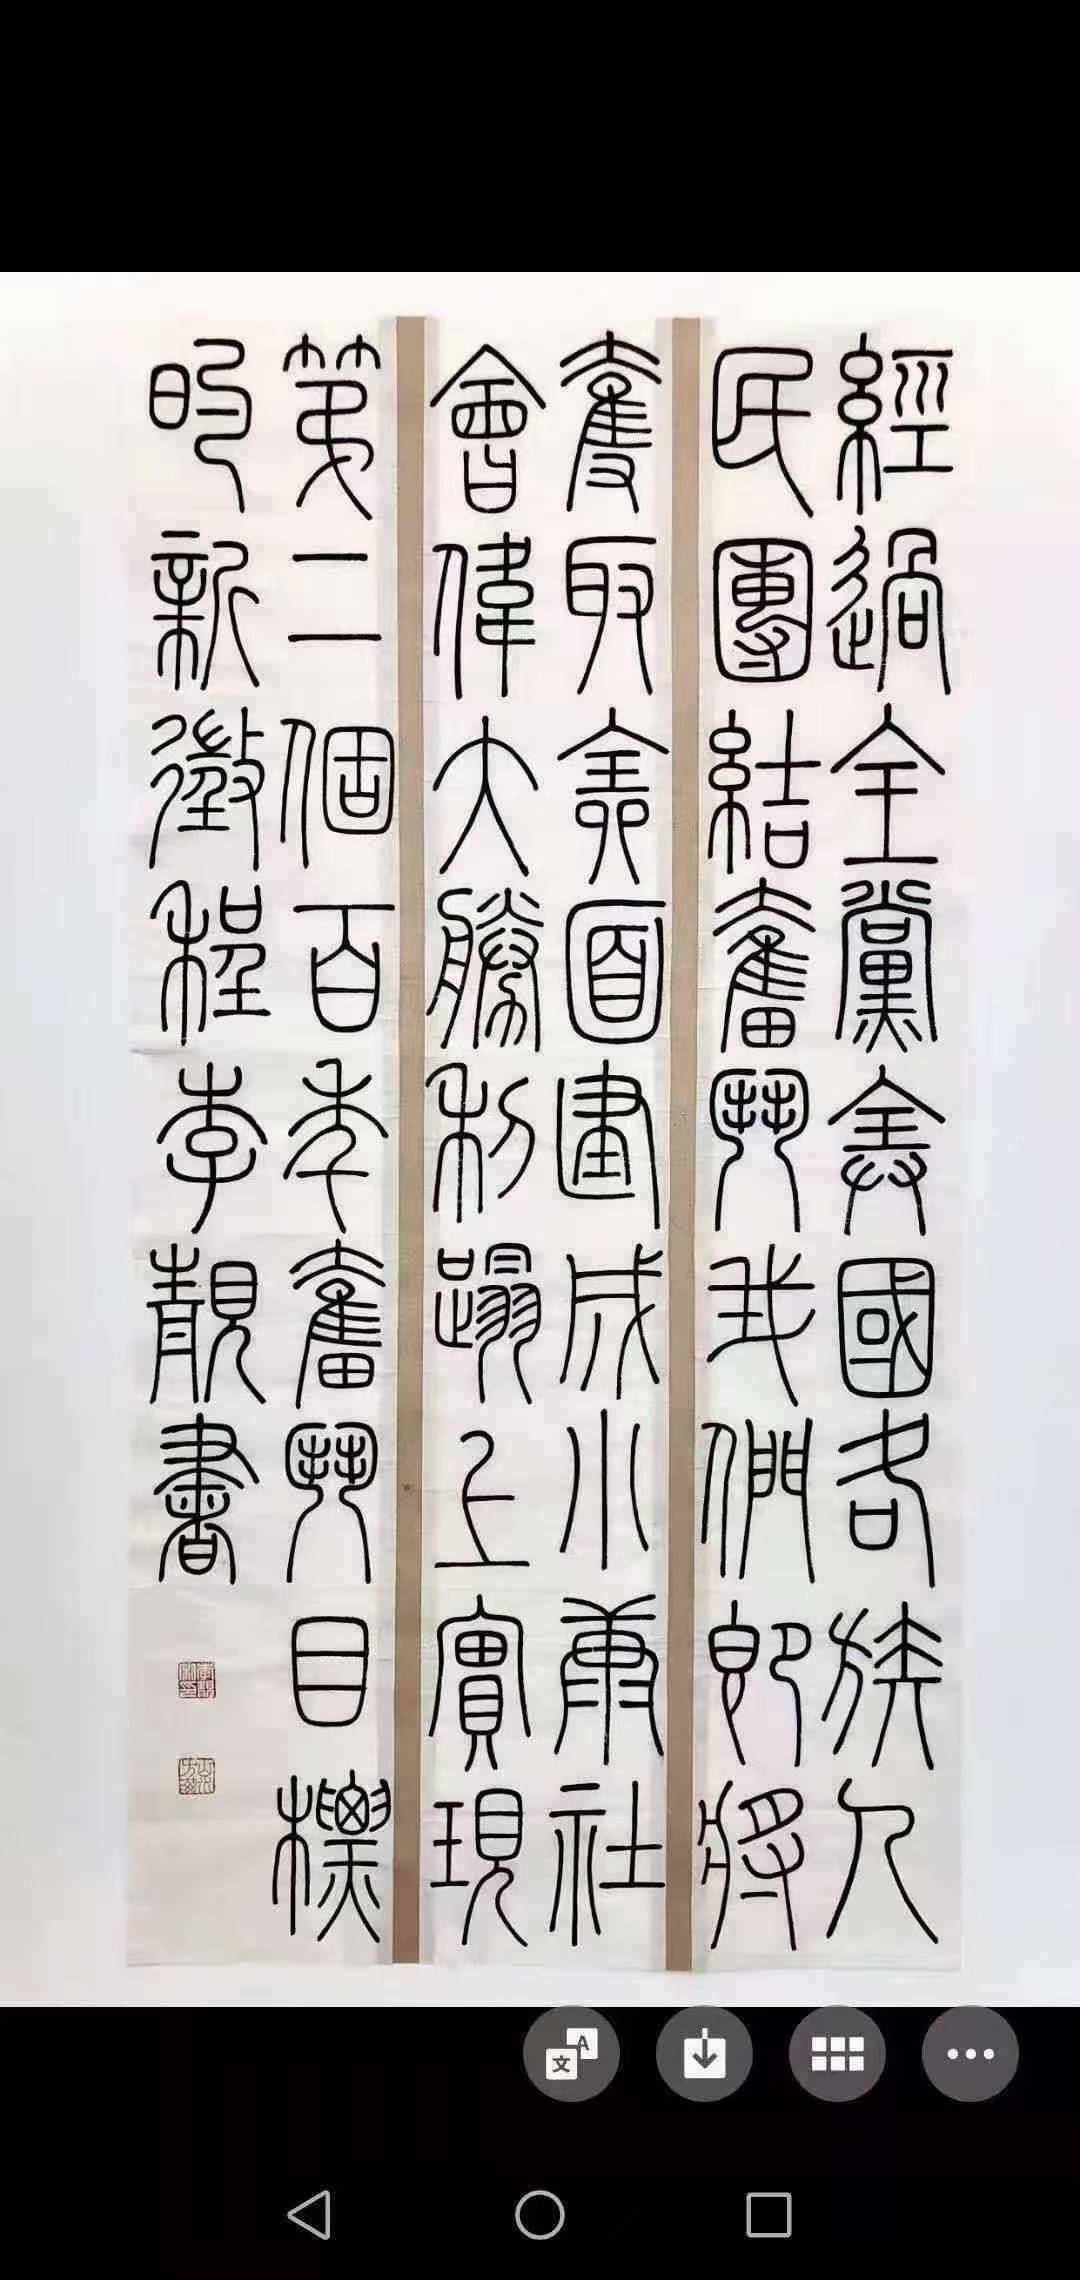 經過全黨全國各族人
民團結奮鬥我們即將
奪取全面建成小康社
會偉大勝利踏上實現
第二個百年奮鬥目標
的新徵程李靚書
文A